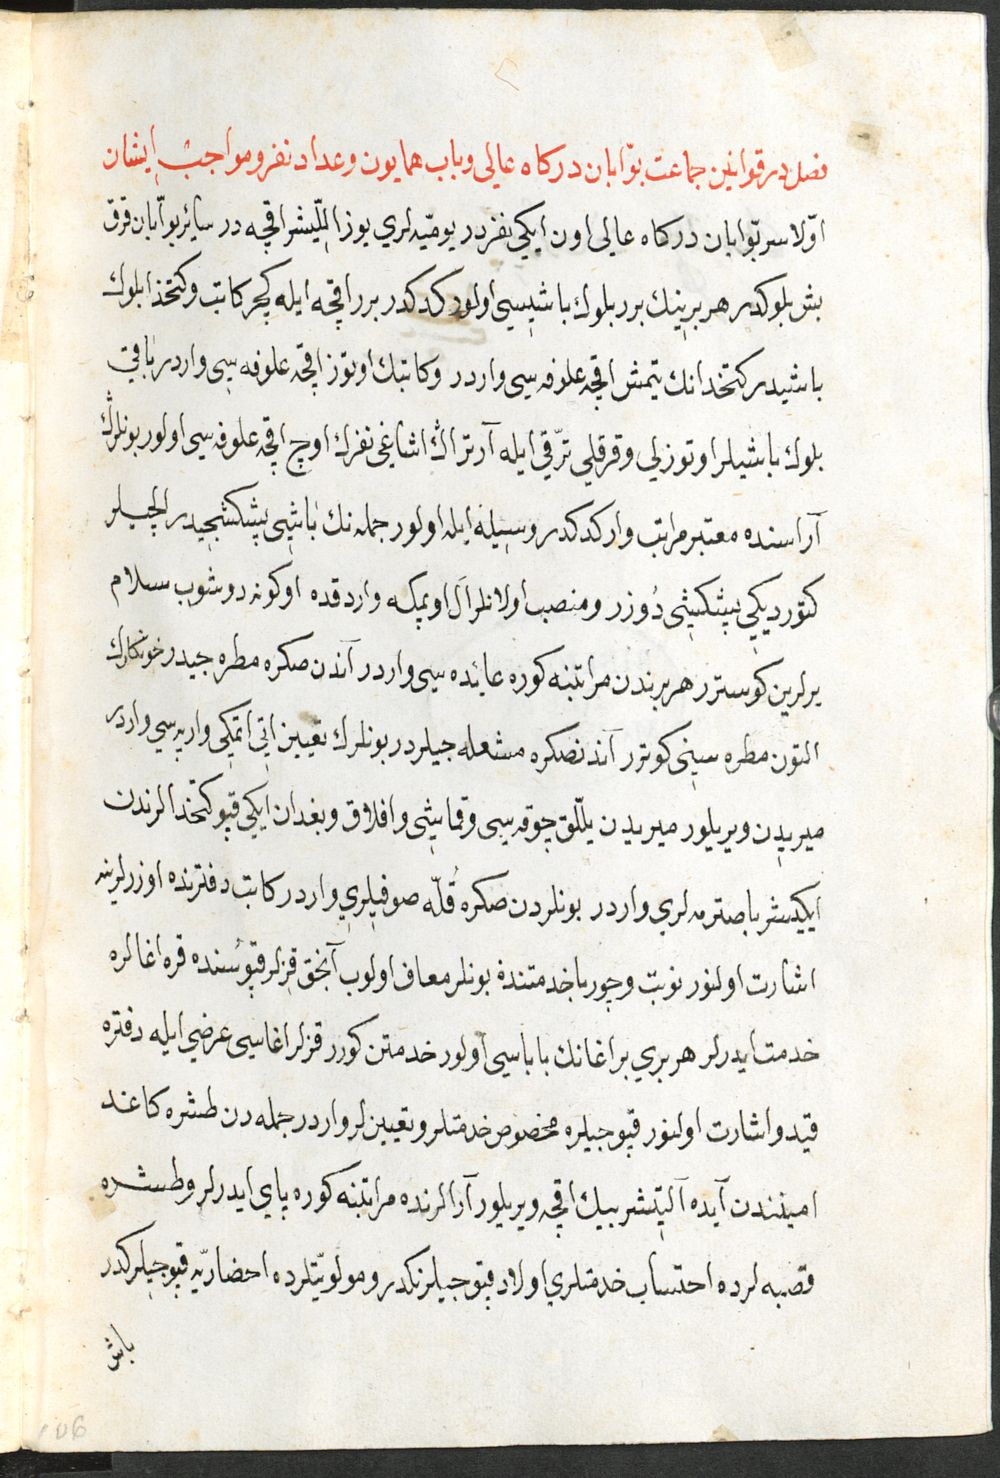 فصل در قوانین جماعت بوّابان درکاه عالی و باب همایون و عداد نفر و مواجب ایشان
اوّلا سر بوّابان درکاه عالی اون ایکی نفردر یومیّه لری یوز اللّیشر اقچه در سائر بوّابان قرق
بش بلوکدر هر برینك برر بلوك باشیسی اولور کدکدر برر اقچه ایله کچر کاتب و کتخدا بلوك
باشیدر کتخدانك یتمش اقچه علوفه سی واردر و کاتبك اوتوز اقچه علوفه سی واردر باقی
بلوك باشیلر اوتوزلی و قرقلی ترّقی ایله آرتر اڭ اشاغی نفرك اوچ اقچه علوفه سی اولور بونلرڭ
آراسنده معتبر مراتب وار کدکدر وسیله ایله اولور جمله نك باشی پیشکشجیدر ایلچیلر
کتوردیکی پیشکشی دُوزر و منصب اولانلر اَل اوپمکه واردقده اوکونه دوشوب سلام
یرلرین کوسترر هر برندن مراتبنه کوره عایده سی واردر آندن صکره مطره جیدر خونکارك
التون مطره سینی کوترر آندنصکره مشعله جیلردر بونلرك تعیین اتی اتمکی و ارپه سی واردر
میریدن ویریلور میریدن یللّق چوقه سی و قماشی و افلاق و بغدان ایکی قپو کتخدالرندن
ایکیشر باصترمه لری واردر بونلردن صکره قُلّه صوفیلری واردر کاتب دفترنده اوزرلرینه
اشارت اولنور نوبت و چوربا خدمتنده بونلر معاف اولوب آنجق قزلر قپوسُنده قره اغالره
خدمت ایدرلر هر بری بر اغانك باباسی اولور خدمتن کورر قزلر اغاسی عرضی ایله دفتره
قید و اشارت اولنور قپوجیلره مخصوص خدمتلر و تعیینلر واردر جمله دن طشره کاغد
امینندن آیده آلتیشر بیك اقچه ویریلور آرالرنده مراتبنه کوره پای ایدرلر و طشره
قصبه لرده احتساب خدمتلری اولاد قپوجیلرنکدر و مولویّتلرده احضاریّه قپوجیلرکدر
باش